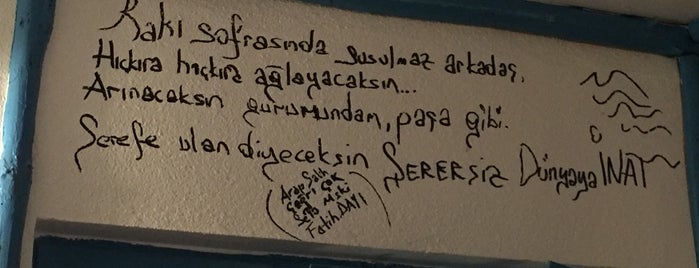 Rakı sofrasında susulmaz arkadaş,
Hıçkıra hıçkıra ağlayacaksın...
Arınacaksın gururundan, paşa gibi.
Şerefe ulan diyeceksin ŞEREFSİZ Dünyaya İNAT
Fatih DAYI